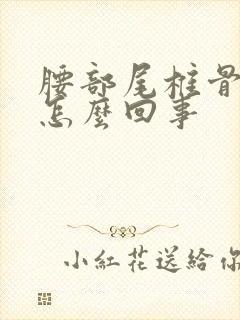 腰部尾椎骨
怎麼回事
小紅花送給你